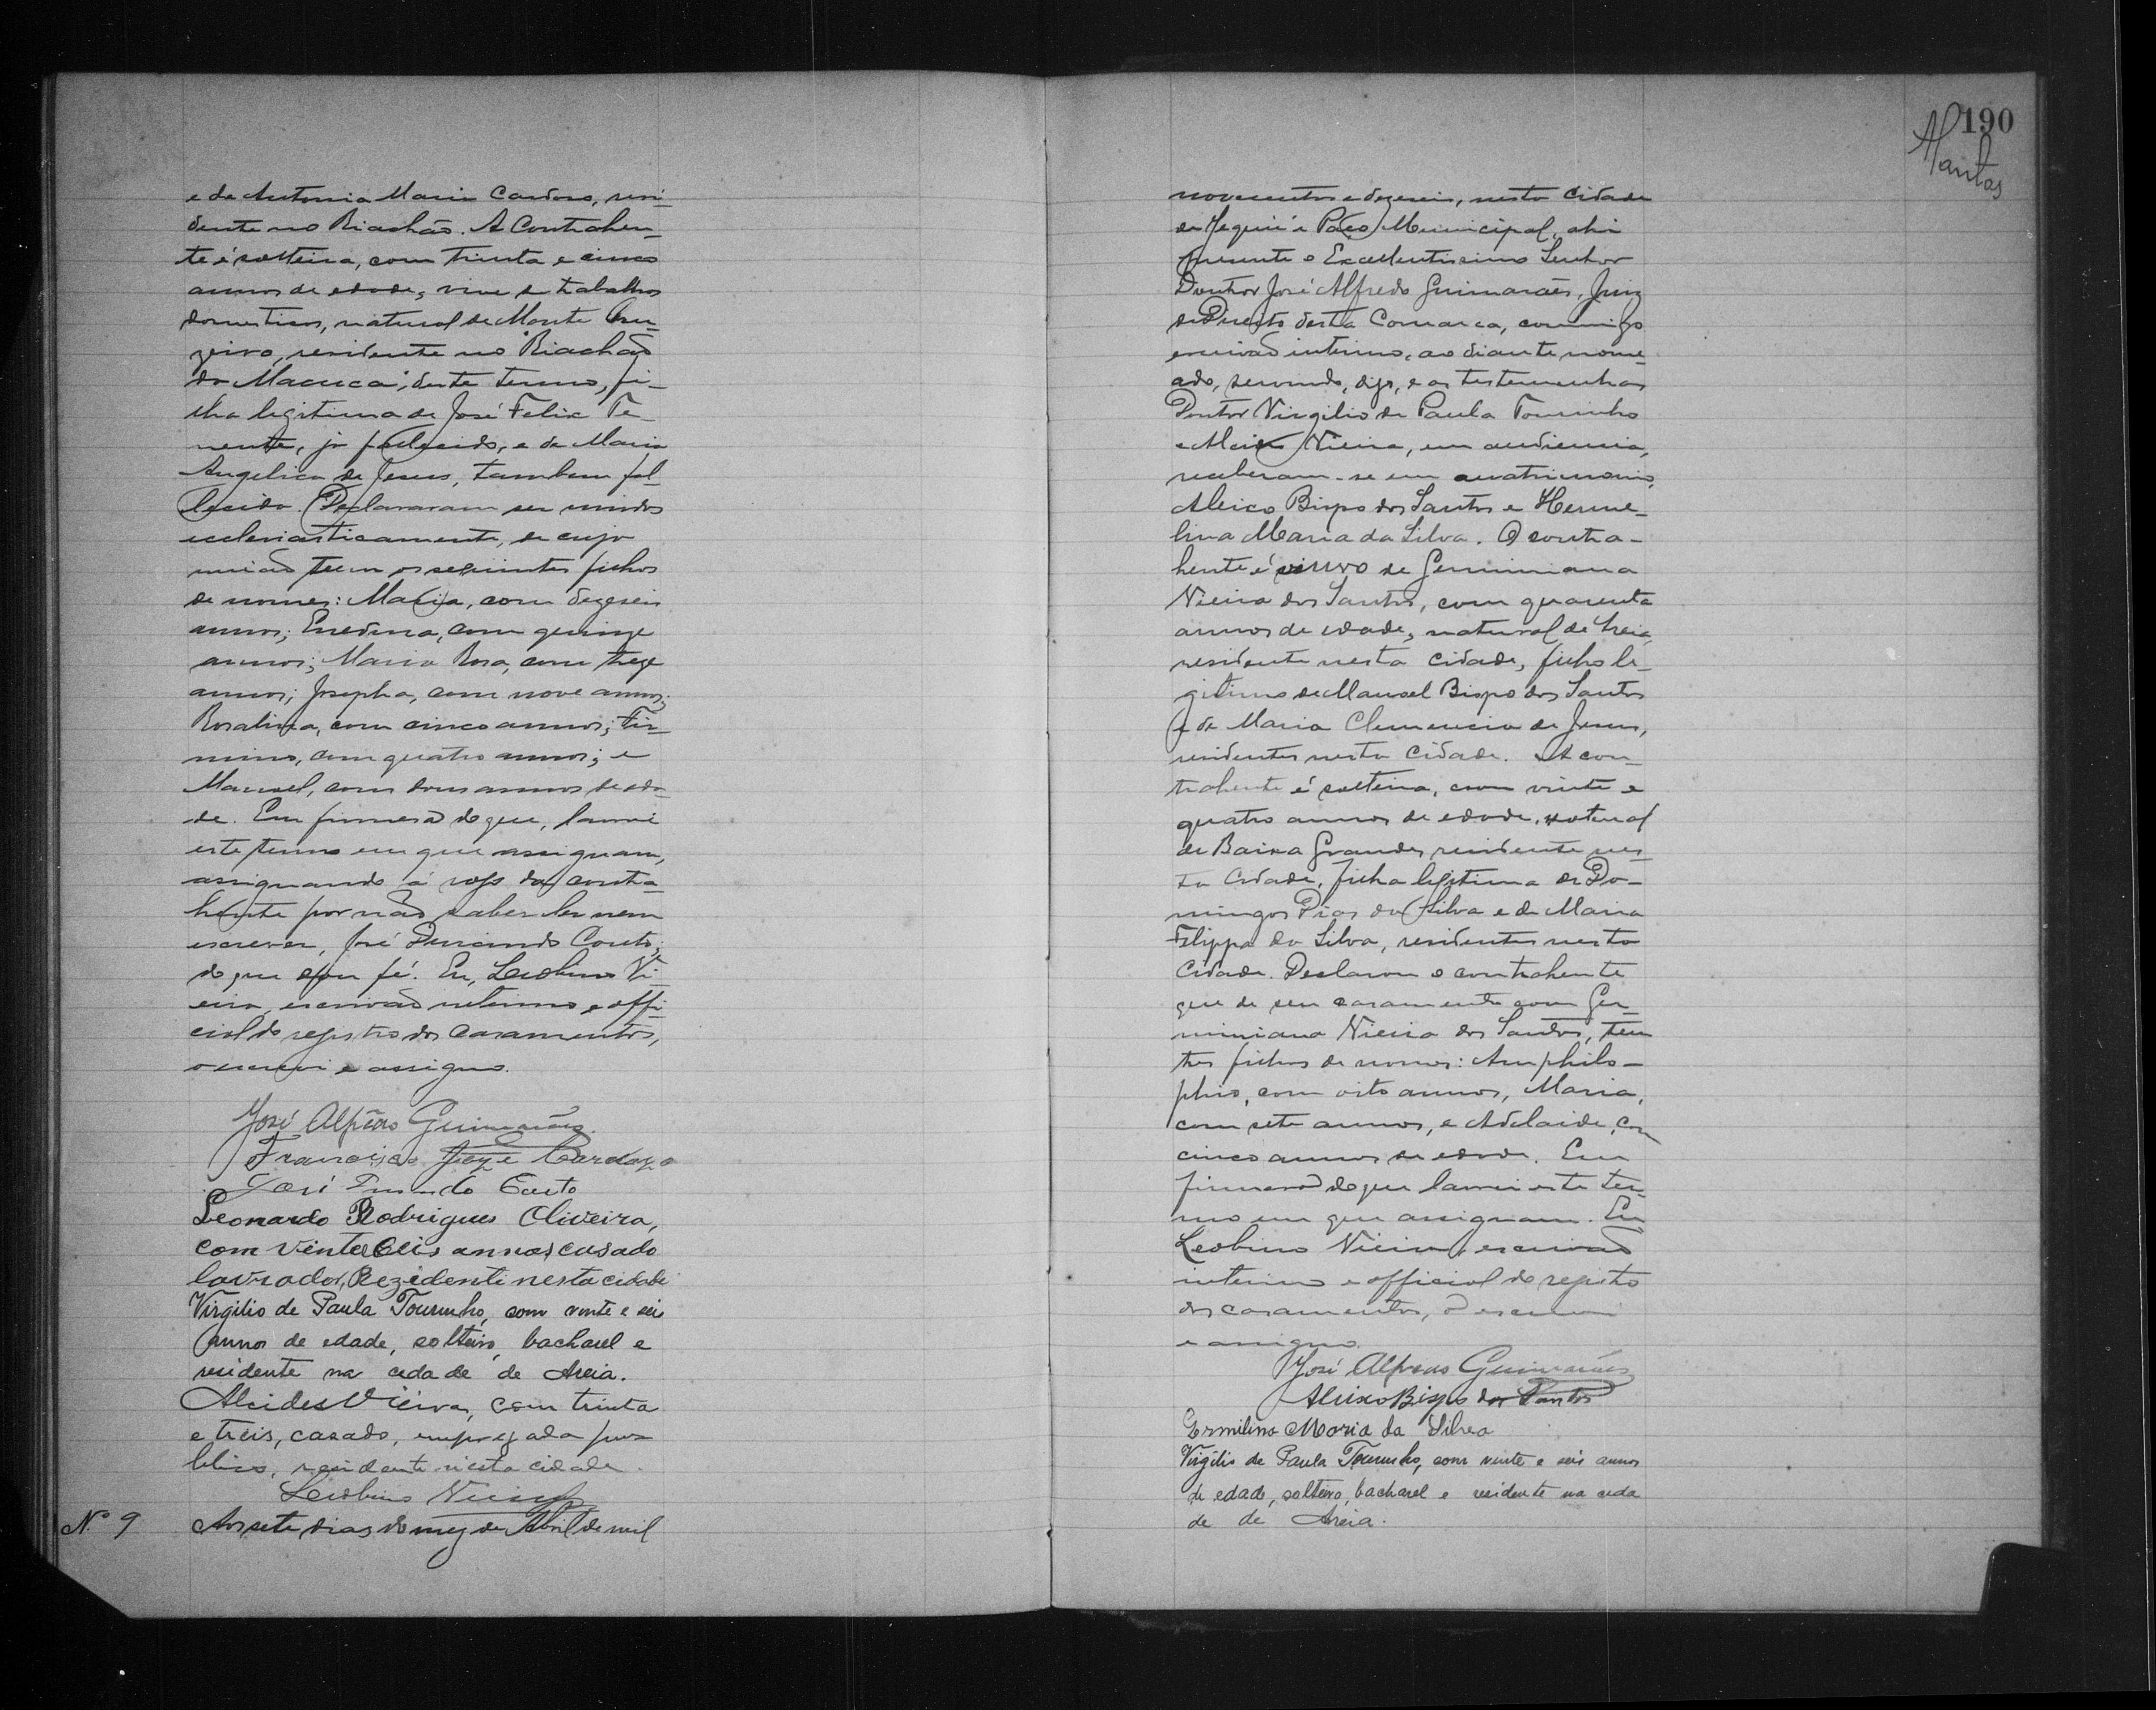 e de Antonia Maria Cardoso, resi-
dente no Riachão. A Contrahen-
te é solteira, com trinta e cinco
annos de edade, vive de trabalhos
domesticos, natural de Monte Cru-
zeiro, residente no Riachão
da Macuca, deste termo, fi-
lha legitima de José Felix Te-
nente, já fallecido, e de Maria
Angelica de Jesus, tambem fal-
lecida. Declararam ser unidos
ecclesiasticamente, de cuja
união teem os seguintes filhos
de nomes: Maria, com dezeseis
annos; Enedina, com quinze
annos; Maria Rosa, com treze
annos; Josepha, com nove annos;
Rosalina, com cinco annos; Fir-
mino, com quatro annos; e
Manoel, com dous annos de eda-
de. Em firmesa do que, lavrei
este termo em que assignam,
assignando á rogo da contra-
hente por não saber ler nem
escrever, José Durando Couto;
do que dou fé. Eu, Leobino Vi-
eira, escrivão interino e offi-
cial do registro dos casamentos,
o escrevi e assigno.
José Alfredo Guimarães.
Francisco José Cardozo
José Durando Couto
Leonardo Rodrigues Oliveira,
com vinte seis annos casado
lavrador, Rezidente nesta cidade
Virgilio de Paula Tourinho, com vinte e seis
annos de edade, solteiro, bacharel e
residente na cidade de Areia.
Alcides Vieira, com trinta
e treis, casado, empregado pu-
blico, residente nesta cidade.
Leobino Vieira
Nº 9 Aos sete dias do mez de Abril de mil
190
novecentos e dezeseis, nesta cidade
de Jequié e Paço Municipal, ahi
presente o Excellentissimo Senhor
Doutor José Alfredo Guimarães, Juiz
de Direito desta Comarca, commigo
escrivão interino, ao diante nome-
ado, servindo, digo, e as testemunhas
Doutor Virgilio de Paula Tourinho
e Alcides Vieira, em audiencia,
receberam-se em matrimonio,
Aleixo Bispo dos Santos e Herme-
lina Maria da Silva. O contra-
hente é viuvo de Germiniana
Vieira dos Santos, com quarenta
annos de edade, natural de Areia,
residente nesta cidade, filho le-
gitimo de Manoel Bispo dos Santos
e de Maria Clemencia de Jesus,
residentes nesta cidade. A con-
trahente é solteira, com vinte e
quatro annos de edade, natural
de Baixa Grande, residente nes-
ta Cidade, filha legitima de Do-
mingos Dias da Silva e de Maria
Filippa da Silva, residentes nesta
Cidade. Declarou o contrahente
que de seu casamento com Ger-
miniana Vieira dos Santos, tem
tres filhos de nomes: Amphilo-
phio, com oito annos, Maria,
com sete annos, e Adelaide, com
cinco annos de edade. Em
firmesa do que lavrei este ter-
mo em que assignam. Eu
Leobino Vieira, escrivão
interino e official do registo
dos casamentos, o escrevi
e assigno.
José Alfredo Guimarães
Aleixo Bispo dos Santos
Ermilina Maria da Silva
Virgilio de Paula Tourinho, com vinte e seis annos
de edade, solteiro, bacharel e residente na cida
de de Areia.